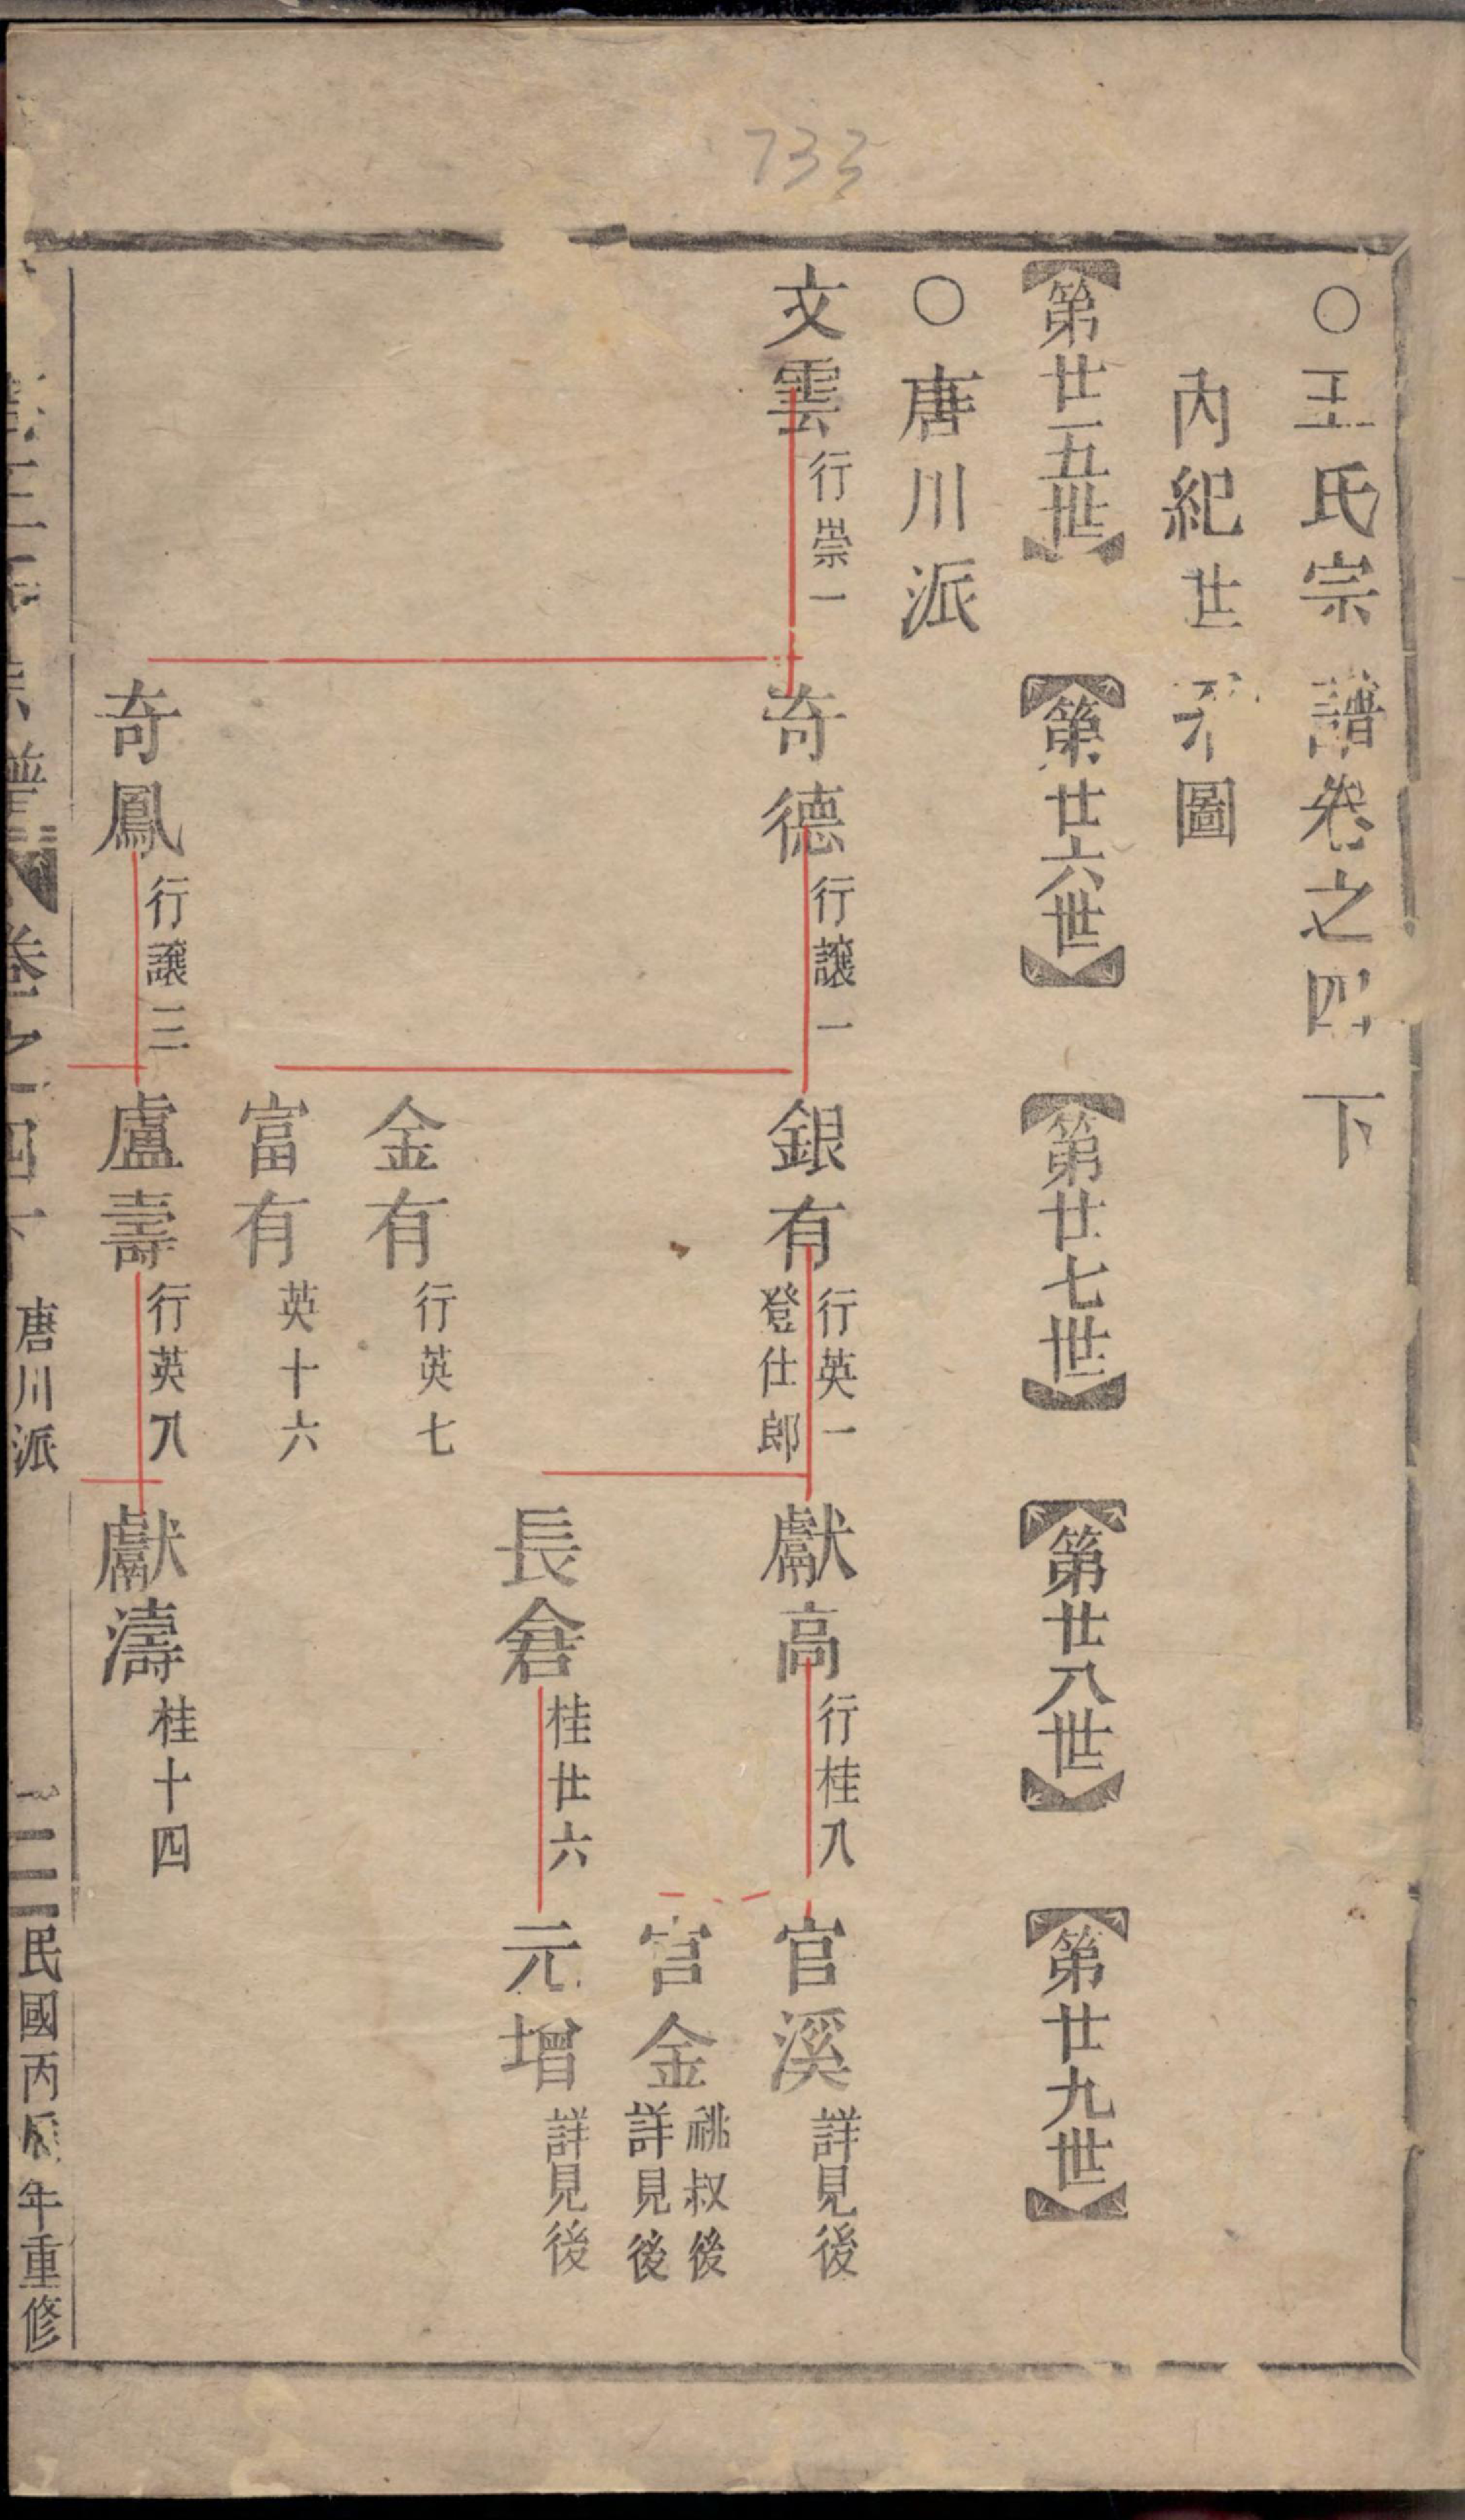 733
○王氏宗譜卷之四下
內紀世系圖
【第廿五世】【第廿六世】【第廿七世】【第廿八世】【第廿九世】
○唐川派
文雲 行崇一
奇德 行讓一
銀有 行英一 登仕郎
獻高 行桂八
官溪 詳見後
官金 祧叔後 詳見後
長倉 桂廿六
元增 詳見後
金有 行英七
富有 英十六
奇鳳 行讓三
盧壽 行英八
獻濤 桂十四
宗譜 卷之四下 唐川派 民國丙辰年重修